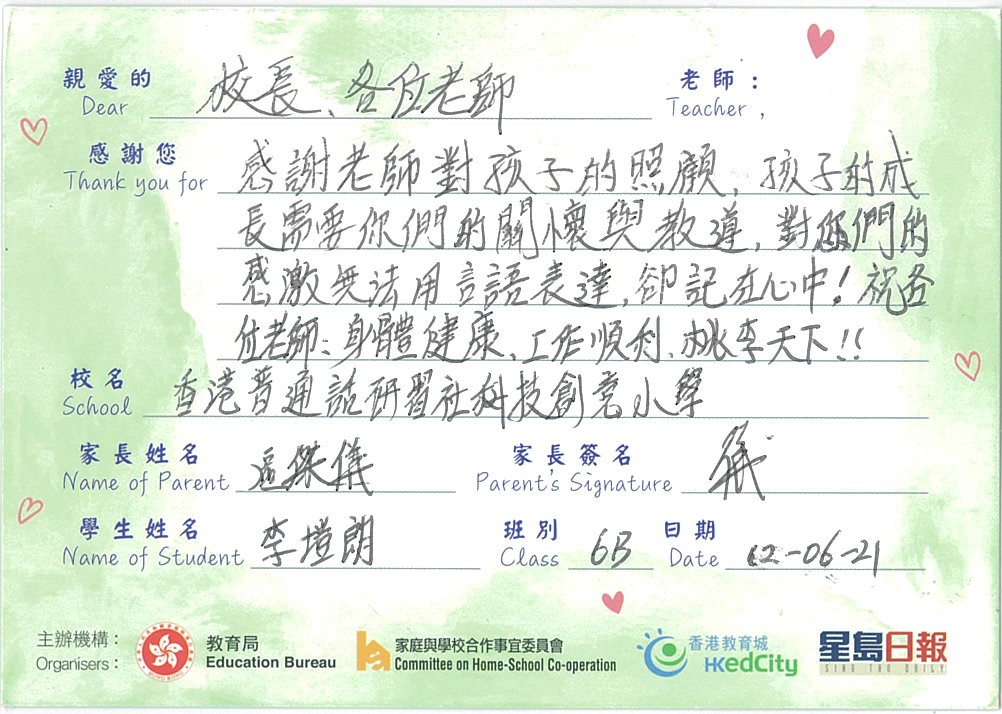 親愛的 校長、各位老師 老師：
Dear Teacher,
感謝您 感謝老師對孩子的照顧，孩子的成
Thank you for
長需要你們的關懷與教導，對您們的
感激無法用言語表達，卻記在心中！祝各
位老師：身體健康、工作順利、桃李天下!!
校名 香港普通話研習社科技創意小學
School
家長姓名 區傑儀 家長簽名 儀
Name of Parent Parent's Signature
學生姓名 李塏朗 班別 6B 日期 12-06-21
Name of Student Class Date
主辦機構： 教育局 家庭與學校合作事宜委員會 香港教育城 星島日報
Organisers： Education Bureau Committee on Home-School Co-operation HKedCity SING TAO DAILY